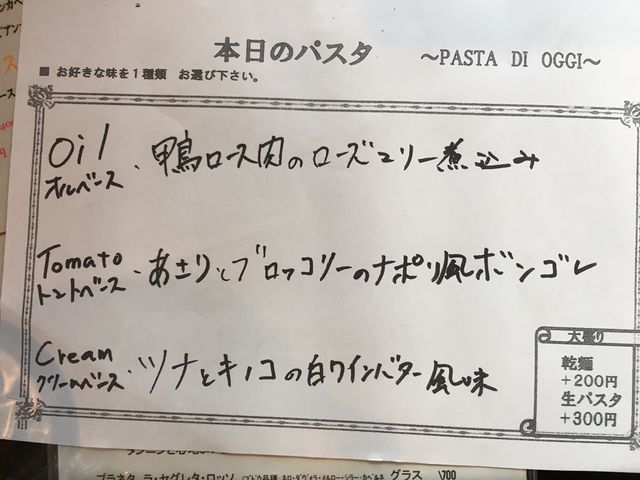 本日のパスタ ～PASTA DI OGGI～
■ お好きな味を1種類 お選び下さい。
Oil
オイルベース・鴨ロース肉のローズマリー煮込み
Tomato
トマトベース・あさりとブロッコリーのナポリ風ボンゴレ
Cream
クリームベース・ツナとキノコの白ワインバター風味
大盛り
乾麺
+200円
生パスタ
+300円
プラネタ ラ・セグレタ・ロッソ グラス \700